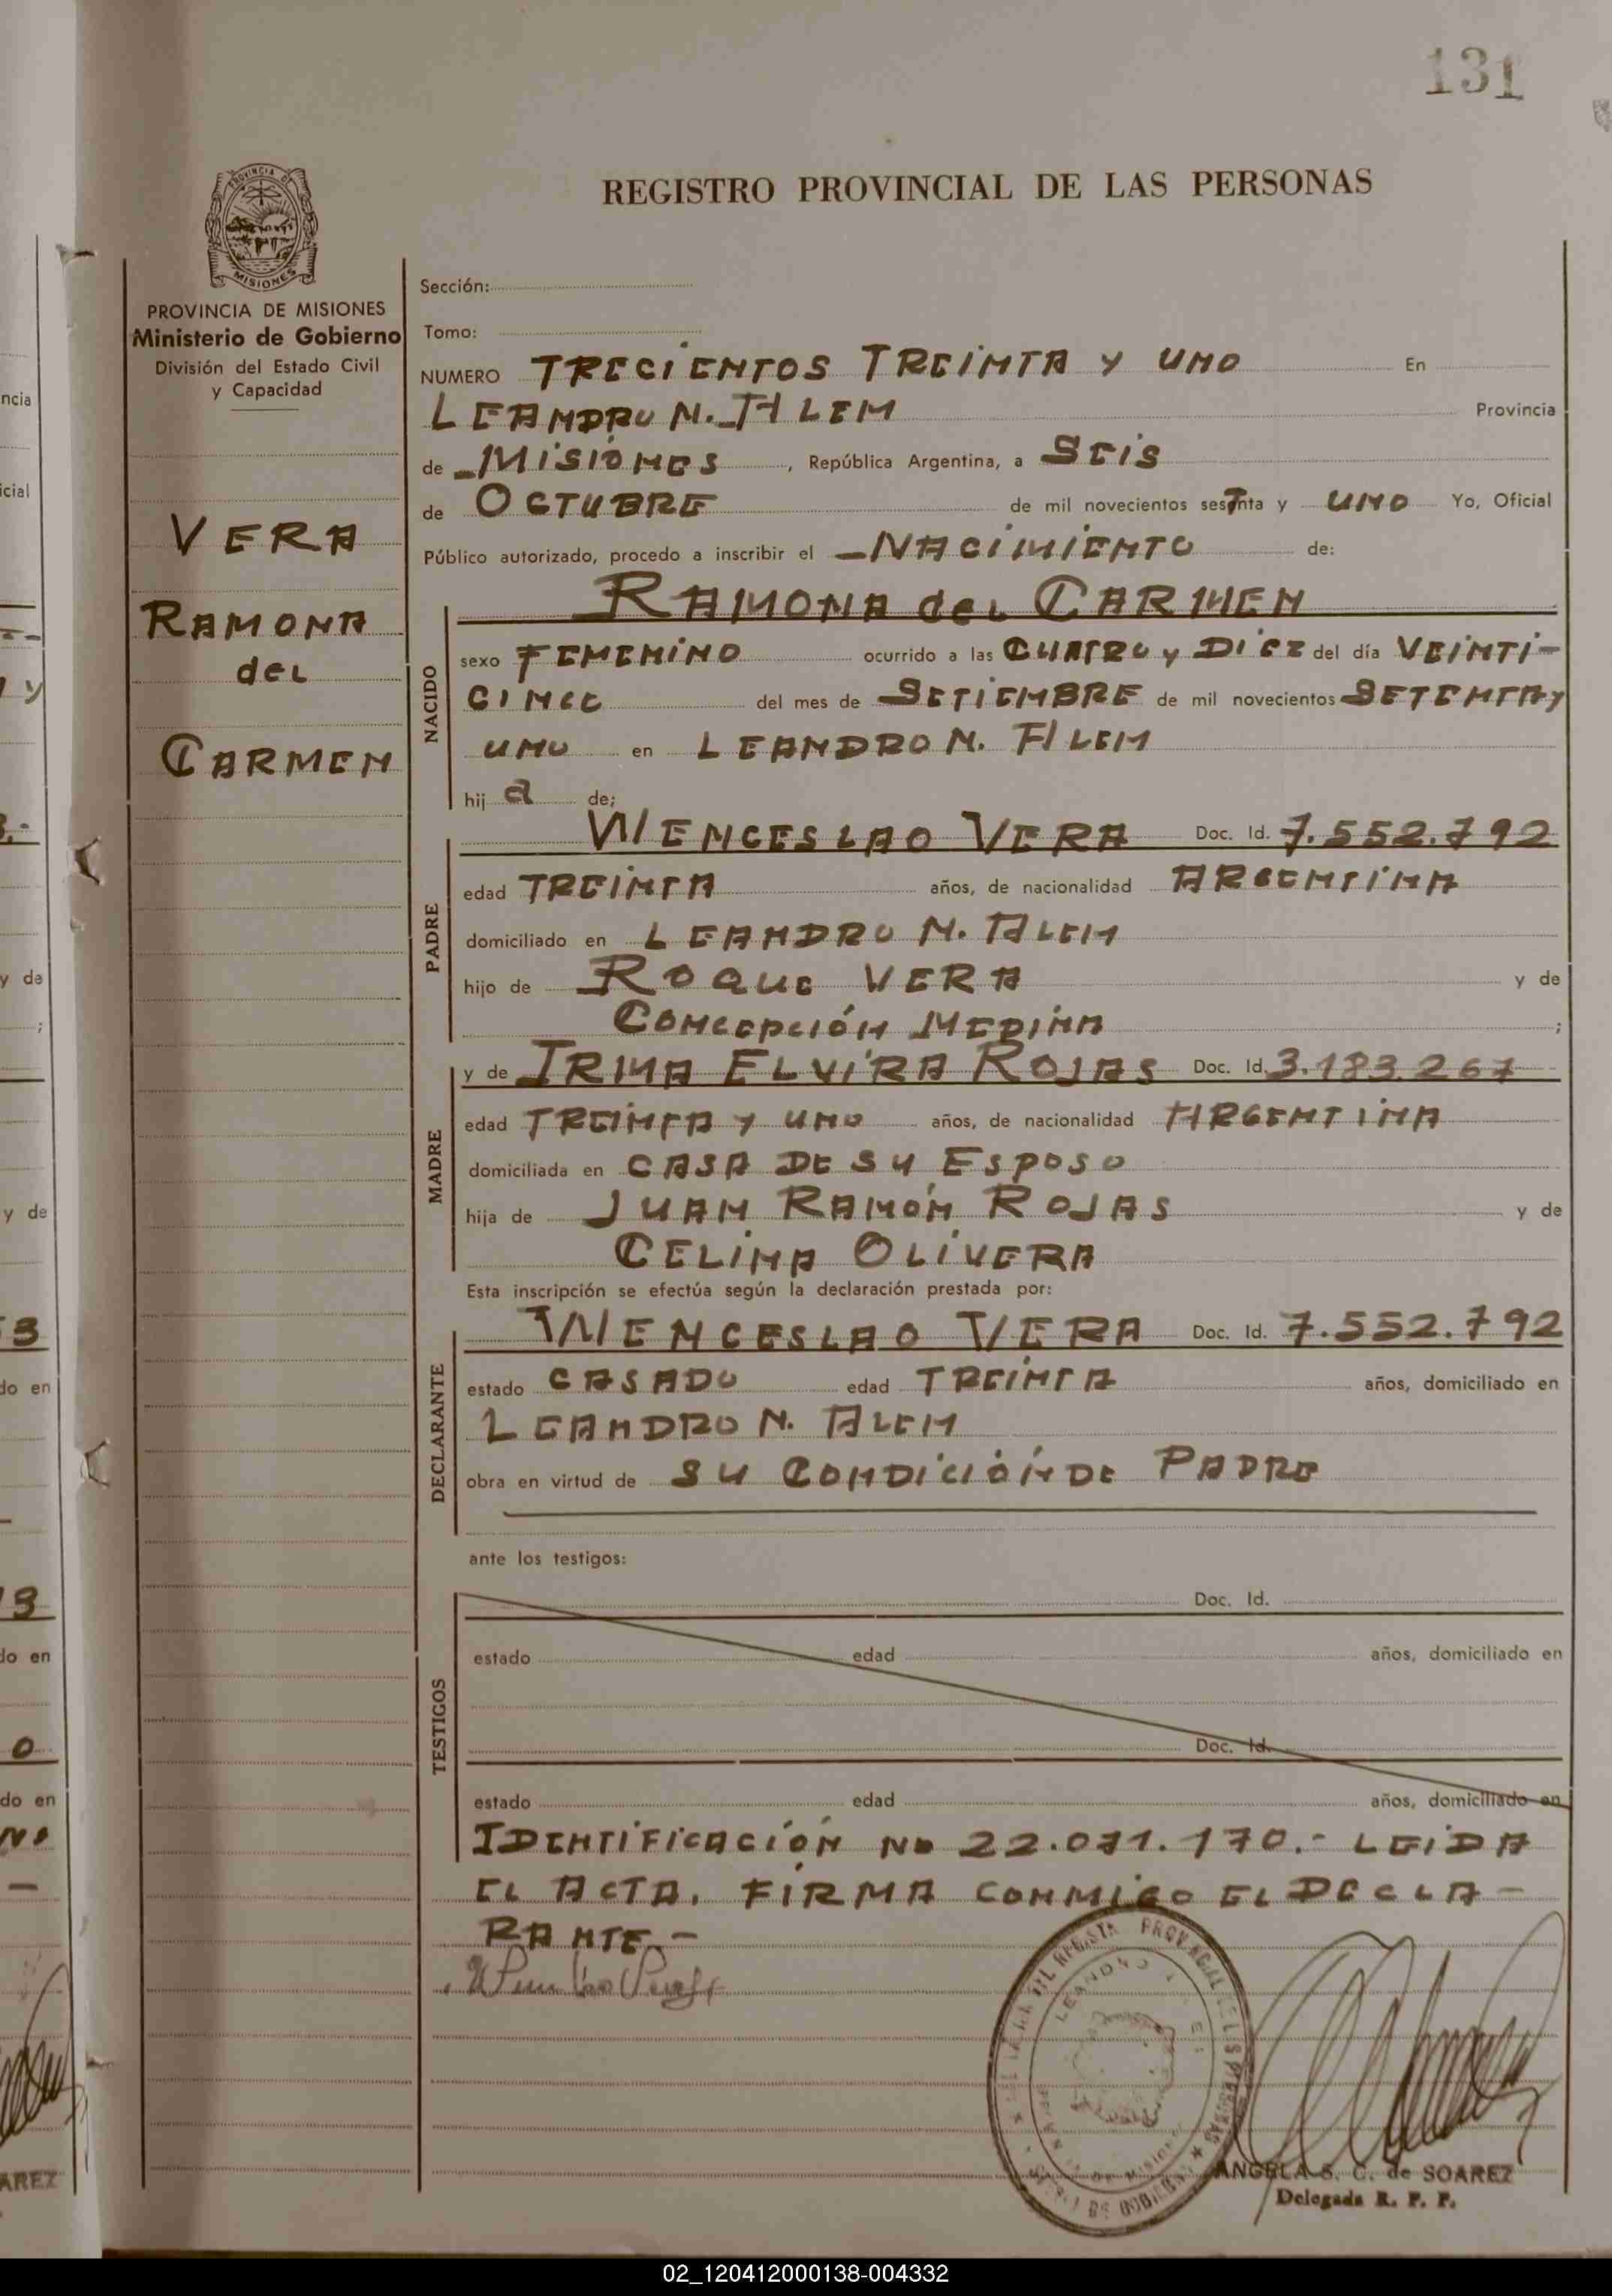 131
REGISTRO PROVINCIAL DE LAS PERSONAS
PROVINCIA DE
MISIONES
PROVINCIA DE MISIONES
Ministerio de Gobierno
División del Estado Civil
y Capacidad
VERA
RAMONA
del
CARMEN
Sección:
Tomo:
NUMERO TRECIENTOS TREINTA Y UNO En
LEANDRO N. ALEM Provincia
de MISIONES, República Argentina, a SEIS
de OCTUBRE de mil novecientos sesTnta y UNO Yo, Oficial
Público autorizado, procedo a inscribir el NACIMIENTO de:
RAMONA del CARMEN
NACIDO
sexo FEMENINO ocurrido a las CUATRO y DIEZ del día VEINTI-
CINCO del mes de SETIEMBRE de mil novecientos SETENTA y
UNO en LEANDRO N. ALEM
hij a de;
WENCESLAO VERA Doc. Id. 7.552.792
PADRE
edad TREINTA años, de nacionalidad ARGENTINA
domiciliado en LEANDRO N. ALEM
hijo de ROQUE VERA y de
CONCEPCIÓN MEDINA ;
y de IRMA ELVIRA ROJAS Doc. Id. 3.183.267
MADRE
edad TREINTA Y UNO años, de nacionalidad ARGENTINA
domiciliada en CASA DE SU ESPOSO
hija de JUAN RAMÓN ROJAS y de
CELINA OLIVERA
Esta inscripción se efectúa según la declaración prestada por:
WENCESLAO VERA Doc. Id. 7.552.792
DECLARANTE
estado CASADO edad TREINTA años, domiciliado en
LEANDRO N. ALEM
obra en virtud de SU CONDICIÓN DE PADRE
ante los testigos:
Doc. Id.
TESTIGOS
estado edad años, domiciliado en
Doc. Id.
estado edad años, domiciliado en
IDENTIFICACIÓN No 22.071.170.- LEIDA
EL ACTA, FIRMA CONMIGO EL DECLA-
RANTE-
ANGELA S. C. de SOAREZ
Delegada R. P. P.
02_120412000138-004332